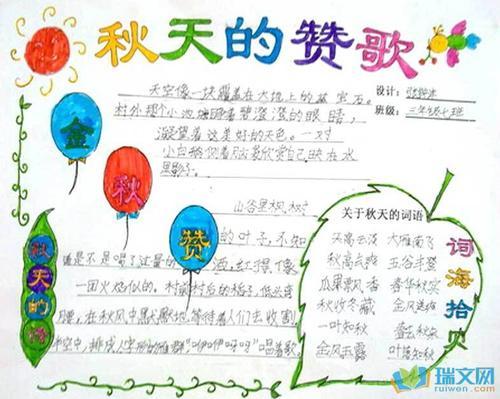 秋天的赞歌
设计：
班级：三年级七班
天空像一块覆盖在大地上的蓝宝石。
村外那个小池塘睁着碧澄澄的眼睛，
凝望着这美好的天色。一对
小白鹅侧着脑袋欣赏自己映在水
里影子。
山谷里枫树
的叶子，不知
道是不是喝了过量的酒，红得像
一团火焰似的。村前村后的稻子，低头弯
腰，在秋风中默默地等待着人们去收割
半空中，排成人字形的雁群"咿咿呀呀"唱着歌。
金
秋
赞
秋天的诗
关于秋天的词语
天高云淡 大雁南飞
秋高气爽 五谷丰登
瓜果飘香 春华秋实
秋收冬藏 金风送爽
一叶知秋
金风玉露 叶落知秋
词海拾贝
瑞文网
ruiwen.com